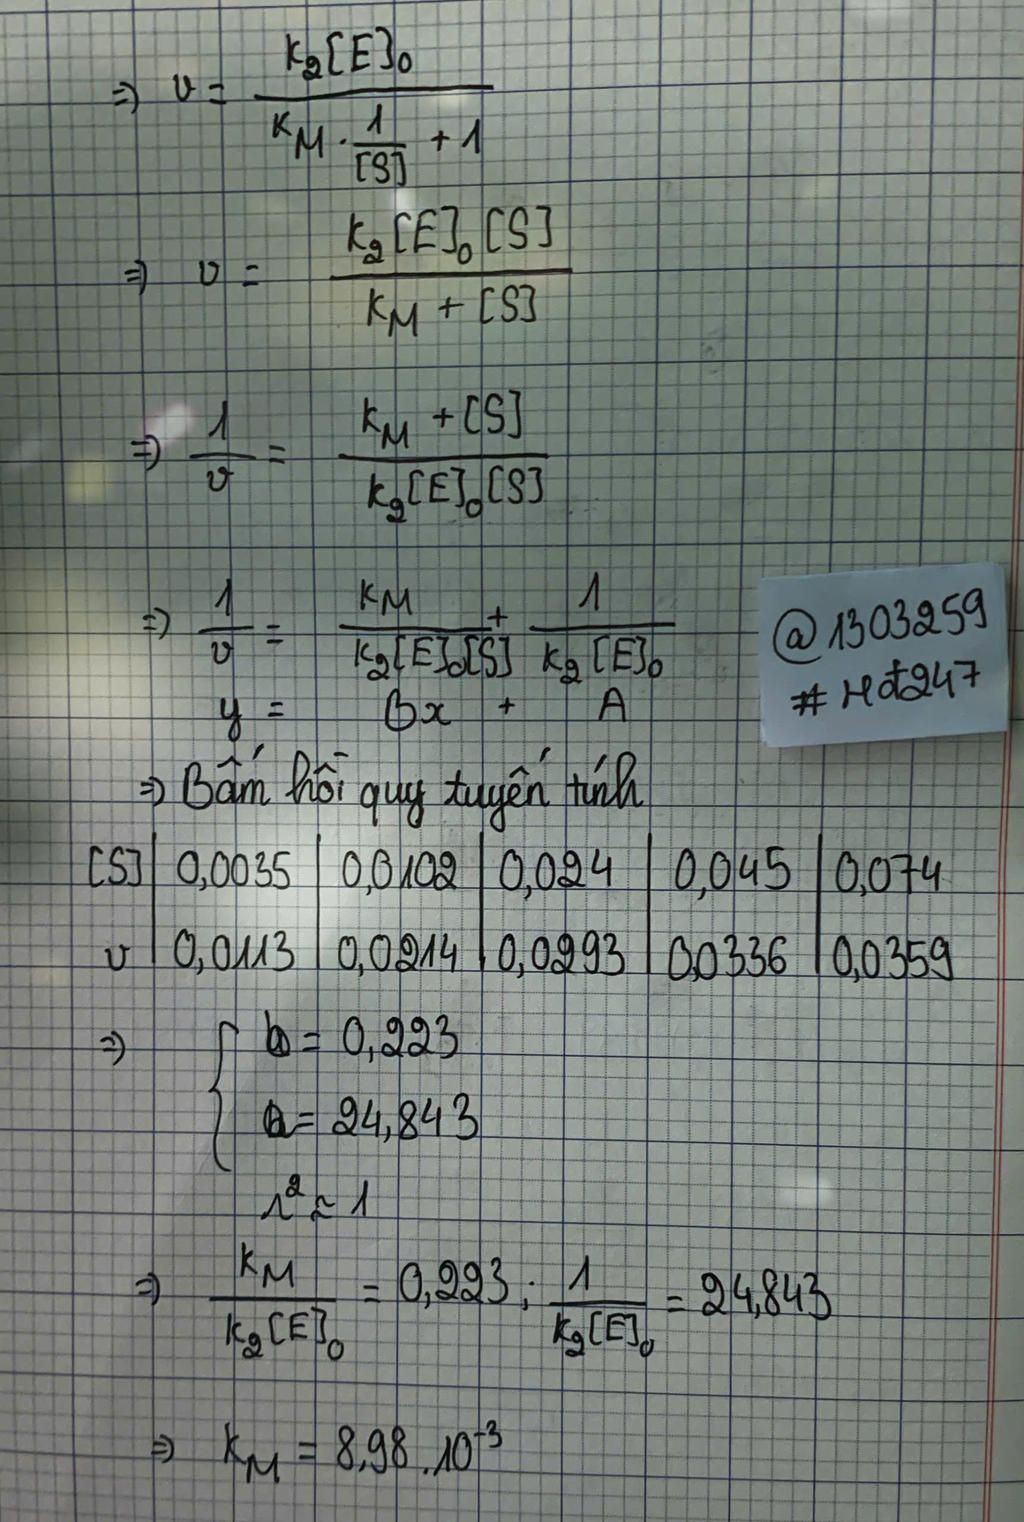 ⇒ v = k₂[E]₀ / (K_M · 1/[S] + 1)
⇒ v = k₂[E]₀[S] / (K_M + [S])
⇒ 1/v = (K_M + [S]) / (k₂[E]₀[S])
⇒ 1/v = K_M / (k₂[E]₀[S]) + 1 / (k₂[E]₀)
y = Bx + A
@1303259
#Hđ247
⇒ Bấm hồi quy tuyến tính
[S] | 0,0035 | 0,0102 | 0,024 | 0,045 | 0,074
v | 0,0113 | 0,0214 | 0,0293 | 0,0336 | 0,0359
⇒ { b = 0,223
a = 24,843
r² ≈ 1
⇒ K_M / (k₂[E]₀) = 0,223 ; 1 / (k₂[E]₀) = 24,843
⇒ K_M = 8,98 . 10⁻³